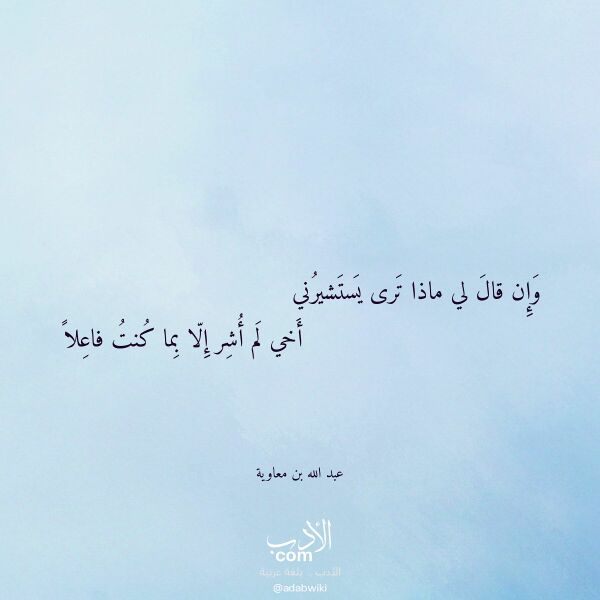 وَإِن قالَ لي ماذا تَرى يَستَشيرُني
أَخي لَم أُشِر إِلّا بِما كُنتُ فاعِلاً
عبد الله بن معاوية
الأدب
com
الأدب .. بلغة عربية
@adabwiki